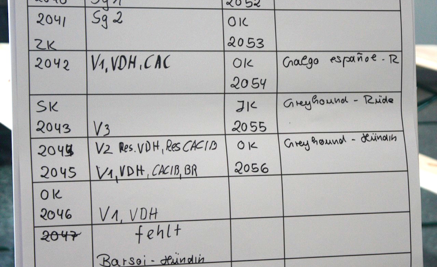 2041 Sg 2 OK
ZK 2053
2042 V1, VDH, CAC OK Galgo español - R
2054
SK JK Greyhound - Rüde
2043 V3 2055
2044 V2 Res. VDH, Res CACIB OK Greyhound - Hündin
2045 V1, VDH, CACIB, BR 2056
OK
2046 V1, VDH
2047 fehlt
Barsoi - Hündin